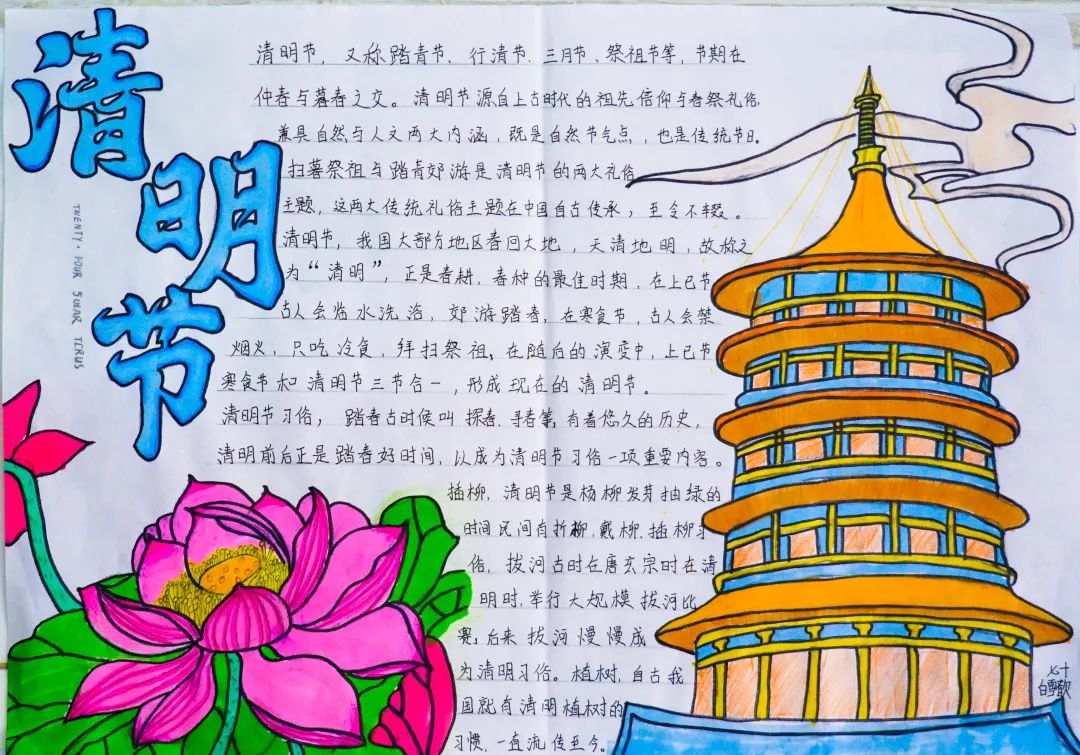 清明节
TWENTY-FOUR SULAR TERMS
清明节，又称踏青节、行清节、三月节、祭祖节等，节期在
仲春与暮春之交。清明节源自上古时代的祖先信仰与春祭礼俗，
兼具自然与人文两大内涵，既是自然节气点，也是传统节日。
扫墓祭祖与踏青郊游是清明节的两大礼俗
主题，这两大传统礼俗主题在中国自古传承，至今不辍。
清明节，我国大部分地区春回大地，天清地明，故称之
为“清明”，正是春耕、春种的最佳时期，在上巳节
古人会临水洗浴，郊游踏春，在寒食节，古人会禁
烟火，只吃冷食，拜扫祭祖。在随后的演变中，上巳节
寒食节和清明节三节合一，形成现在的清明节。
清明节习俗，踏春古时候叫探春、寻春等，有着悠久的历史，
清明前后正是踏春好时间，以成为清明节习俗一项重要内容。
插柳，清明节是杨柳发芽抽绿的
时间民间有折柳、戴柳、插柳习
俗，拔河古时在唐玄宗时在清
明时，举行大规模拔河比
赛，后来拔河慢慢成
为清明习俗。植树，自古我
国就有清明植树的
习惯，一直流传至今。
七十
白雪歌